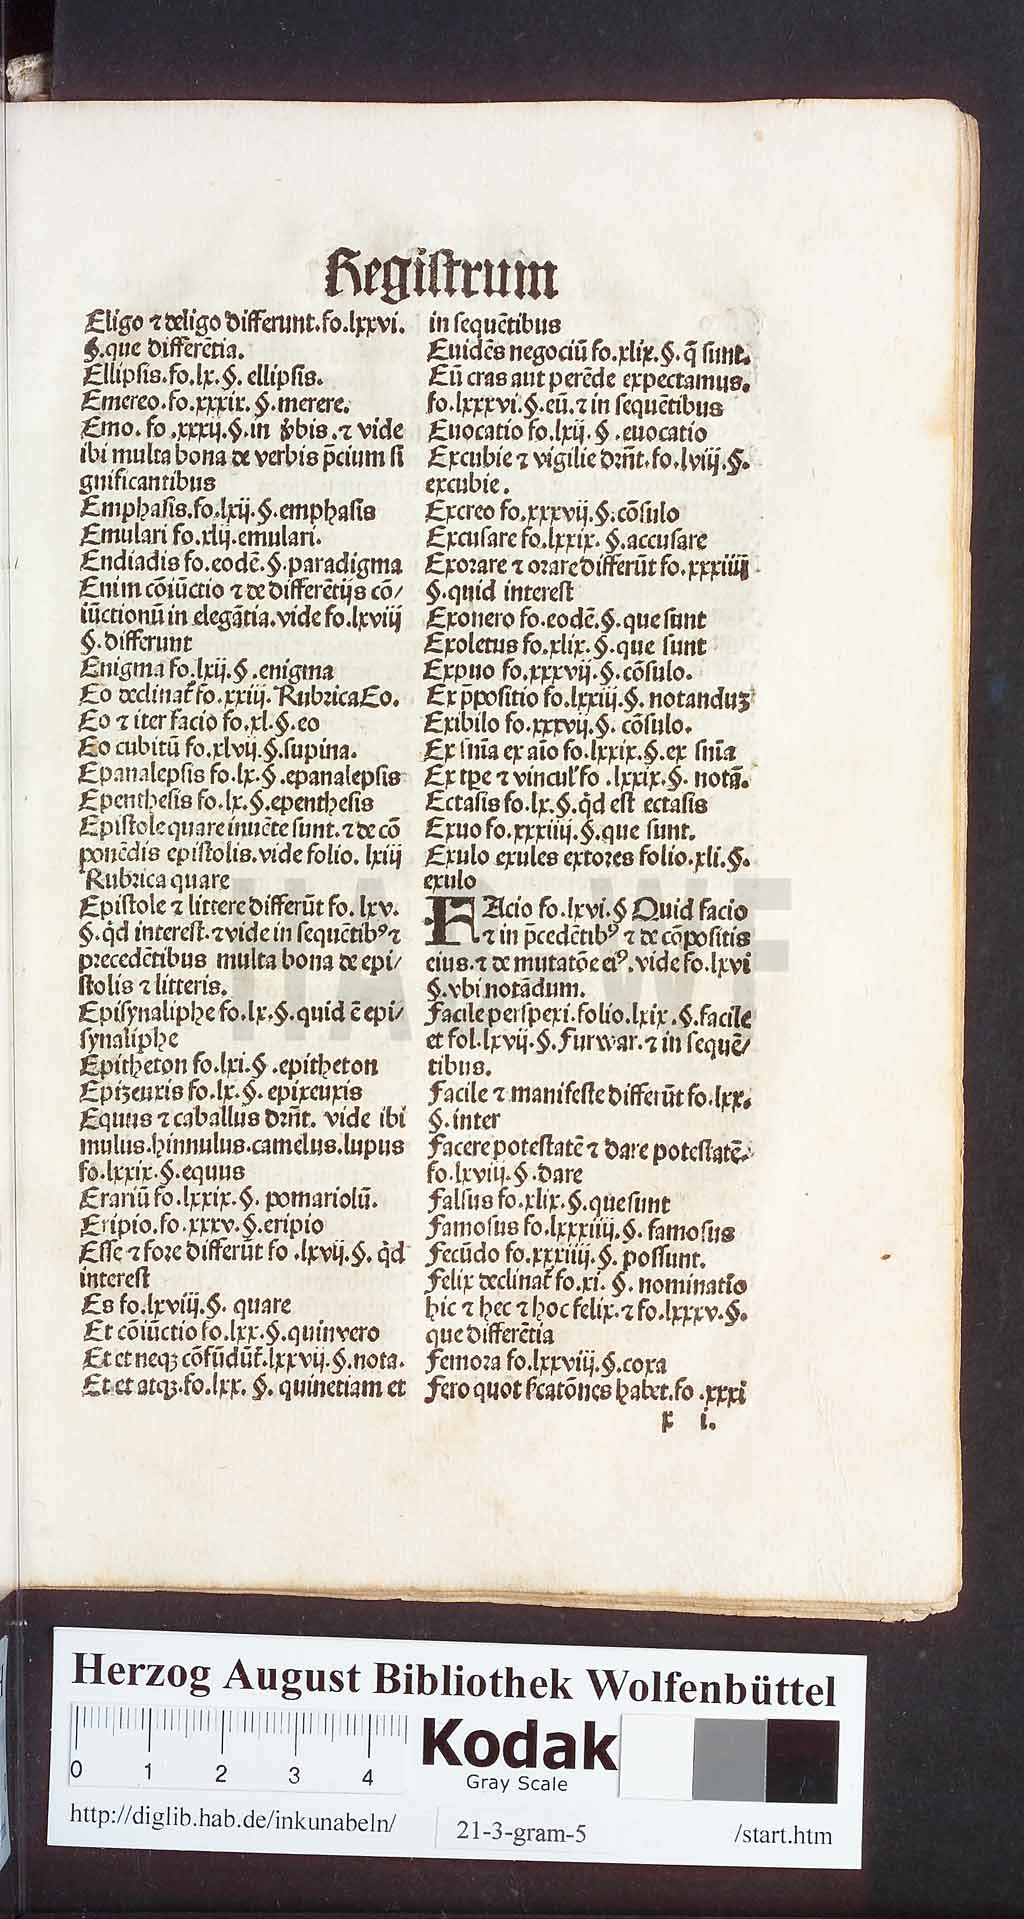 Registrum
Eligo ⁊ deligo differunt.fo.lxxvi.
§.que differētia.
Ellipsis.fo.lx.§. ellipsis.
Emereo.fo.xxxix.§.merere.
Emo. fo.xxxij.§.in ꝟbis.⁊ vide
ibi multa bona de verbis p̄cium si
gnificantibus
Emphasis.fo.lxij.§.emphasis
Emulari fo.xlij.emulari.
Endiadis fo.eodē.§.paradigma
Enim cōiūctio ⁊ de differētijs cō/
iūctionū in elegātia.vide fo.lxviij
§.differunt
Enigma fo.lxij.§.enigma
Eo declinat̄ fo.xxiij. Rubrica Eo.
Eo ⁊ iter facio fo.xl.§.eo
Eo cubitū fo.xlvij.§.supina.
Epanalepsis fo.lx.§.epanalepsis
Epenthesis fo.lx.§.epenthesis
Epistole quare inuēte sunt.⁊ de cō
ponēdis epistolis.vide folio. lxiij
Rubrica quare
Epistole ⁊ littere differūt fo. lxv.
§.q̇d interest.⁊ vide in sequētibꝰ ⁊
precedētibus multa bona de epi/
stolis ⁊ litteris.
Episynaliphe fo.lx.§.quid ē epi/
synaliphe
Epitheton fo.lxi.§.epitheton
Epizeuxis fo.lx.§. epixeuxis
Equus ⁊ caballus drn̄t. vide ibi
mulus.hinnulus.camelus.lupus
fo.lxxix.§.equus
Erariū fo.lxxix.§. pomariolū.
Eripio.fo.xxxv.§.eripio
Esse ⁊ fore differūt fo.lxvij.§. q̇d
interest
Es fo.lxviij.§. quare
Et cōiūctio fo.lxx.§.quinvero
Et et neqꝫ cōfūdūt̄.lxxvij.§.nota.
Et et atqꝫ.fo.lxx. §. quinetiam et
in sequētibus
Euidēs negociū fo.xlix.§. q̄ sunt.
Eū cras aut perēde expectamus.
fo.lxxxvi.§.eū.⁊ in sequētibus
Euocatio fo.lxij.§.euocatio
Excubie ⁊ vigilie drn̄t.fo.lviij.§.
excubie.
Excreo fo.xxxvij.§.cōsulo
Excusare fo.lxxix. §.accusare
Exorare ⁊ orare differūt fo.xxxiiij
§.quid interest
Exonero fo.eodē.§.que sunt
Exoletus fo.xlix.§.que sunt
Expuo fo.xxxvij.§.cōsulo.
Ex p̄positio fo.lxxiij.§. notanduꝫ
Exibilo fo.xxxvij.§. cōsulo.
Ex sn̄ia ex aīo fo.lxxix.§.ex sn̄ia
Ex tp̄e ⁊ vincul' fo.lxxix.§. notā.
Ectasis fo.lx.§.q̇d est ectasis
Exuo fo.xxxiiij.§.que sunt.
Exulo exules extores folio.xli.§.
exulo
FAcio fo.lxvi.§ Quid facio
⁊ in p̄cedētibꝰ ⁊ de cōpositis
eius.⁊ de mutatōe eiꝰ.vide fo.lxvi
§.vbi notādum.
Facile perspexi.folio.lxix.§.facile
et fol.lxvij.§.Furwar.⁊ in sequē/
tibus.
Facile ⁊ manifeste differūt fo.lxx.
§.inter
Facere potestatē ⁊ dare potestatē.
fo.lxviij.§.dare
Falsus fo.xlix.§.que sunt
Famosus fo.lxxxiiij.§. famosus
Fecūdo fo.xxxiiij.§. possunt.
Felix declinat̄ fo.xi. §. nominatīo
hic ⁊ hec ⁊ hoc felix.⁊ fo.lxxxv.§.
que differētia
Femora fo.lxxviij.§.coxa
Fero quot sc̄atōnes habet.fo.xxxi
x i.
Herzog August Bibliothek Wolfenbüttel
0 1 2 3 4
Kodak
Gray Scale
http://diglib.hab.de/inkunabeln/ 21-3-gram-5 /start.htm
HAB WF